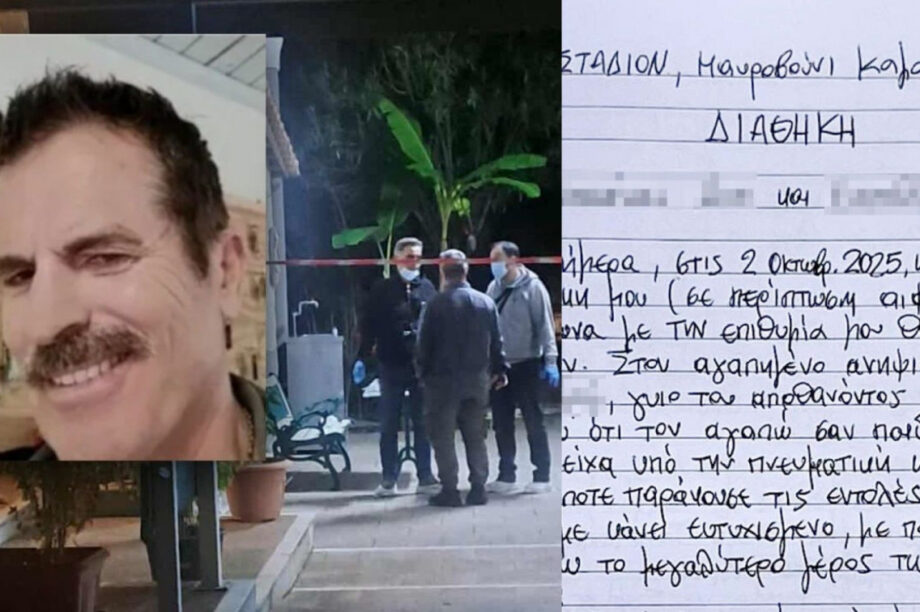 ΣΤΑΔΙΟΝ, Μαυροβούνι Καμα
ΔΙΑΘΗΚΗ
και
ήμερα, στις 2 οκτωβρ. 2025,
κη μου (σε περίπτωση αιφ
ωνα με την επιθυμία μου θ
ν. Στον αγαπημένο ανηψι
, γυιο του αποθανόντος
ύ ότι τον αγαπώ σαν παιδ
είχα υπό την πνευματική
ποτε παράκουσε τις εντολέ
με κάνει ευτυχισμένο, με π
ω το μεγαλύτερο μέρος τη